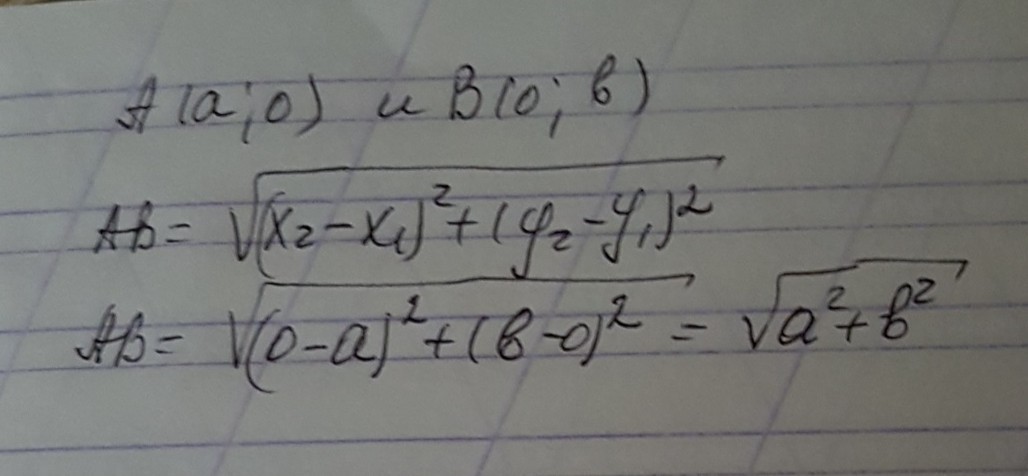 A(a;0) и B(0;b)
AB = √(x₂-x₁)²+(y₂-y₁)²
AB = √(0-a)²+(b-0)² = √a²+b²